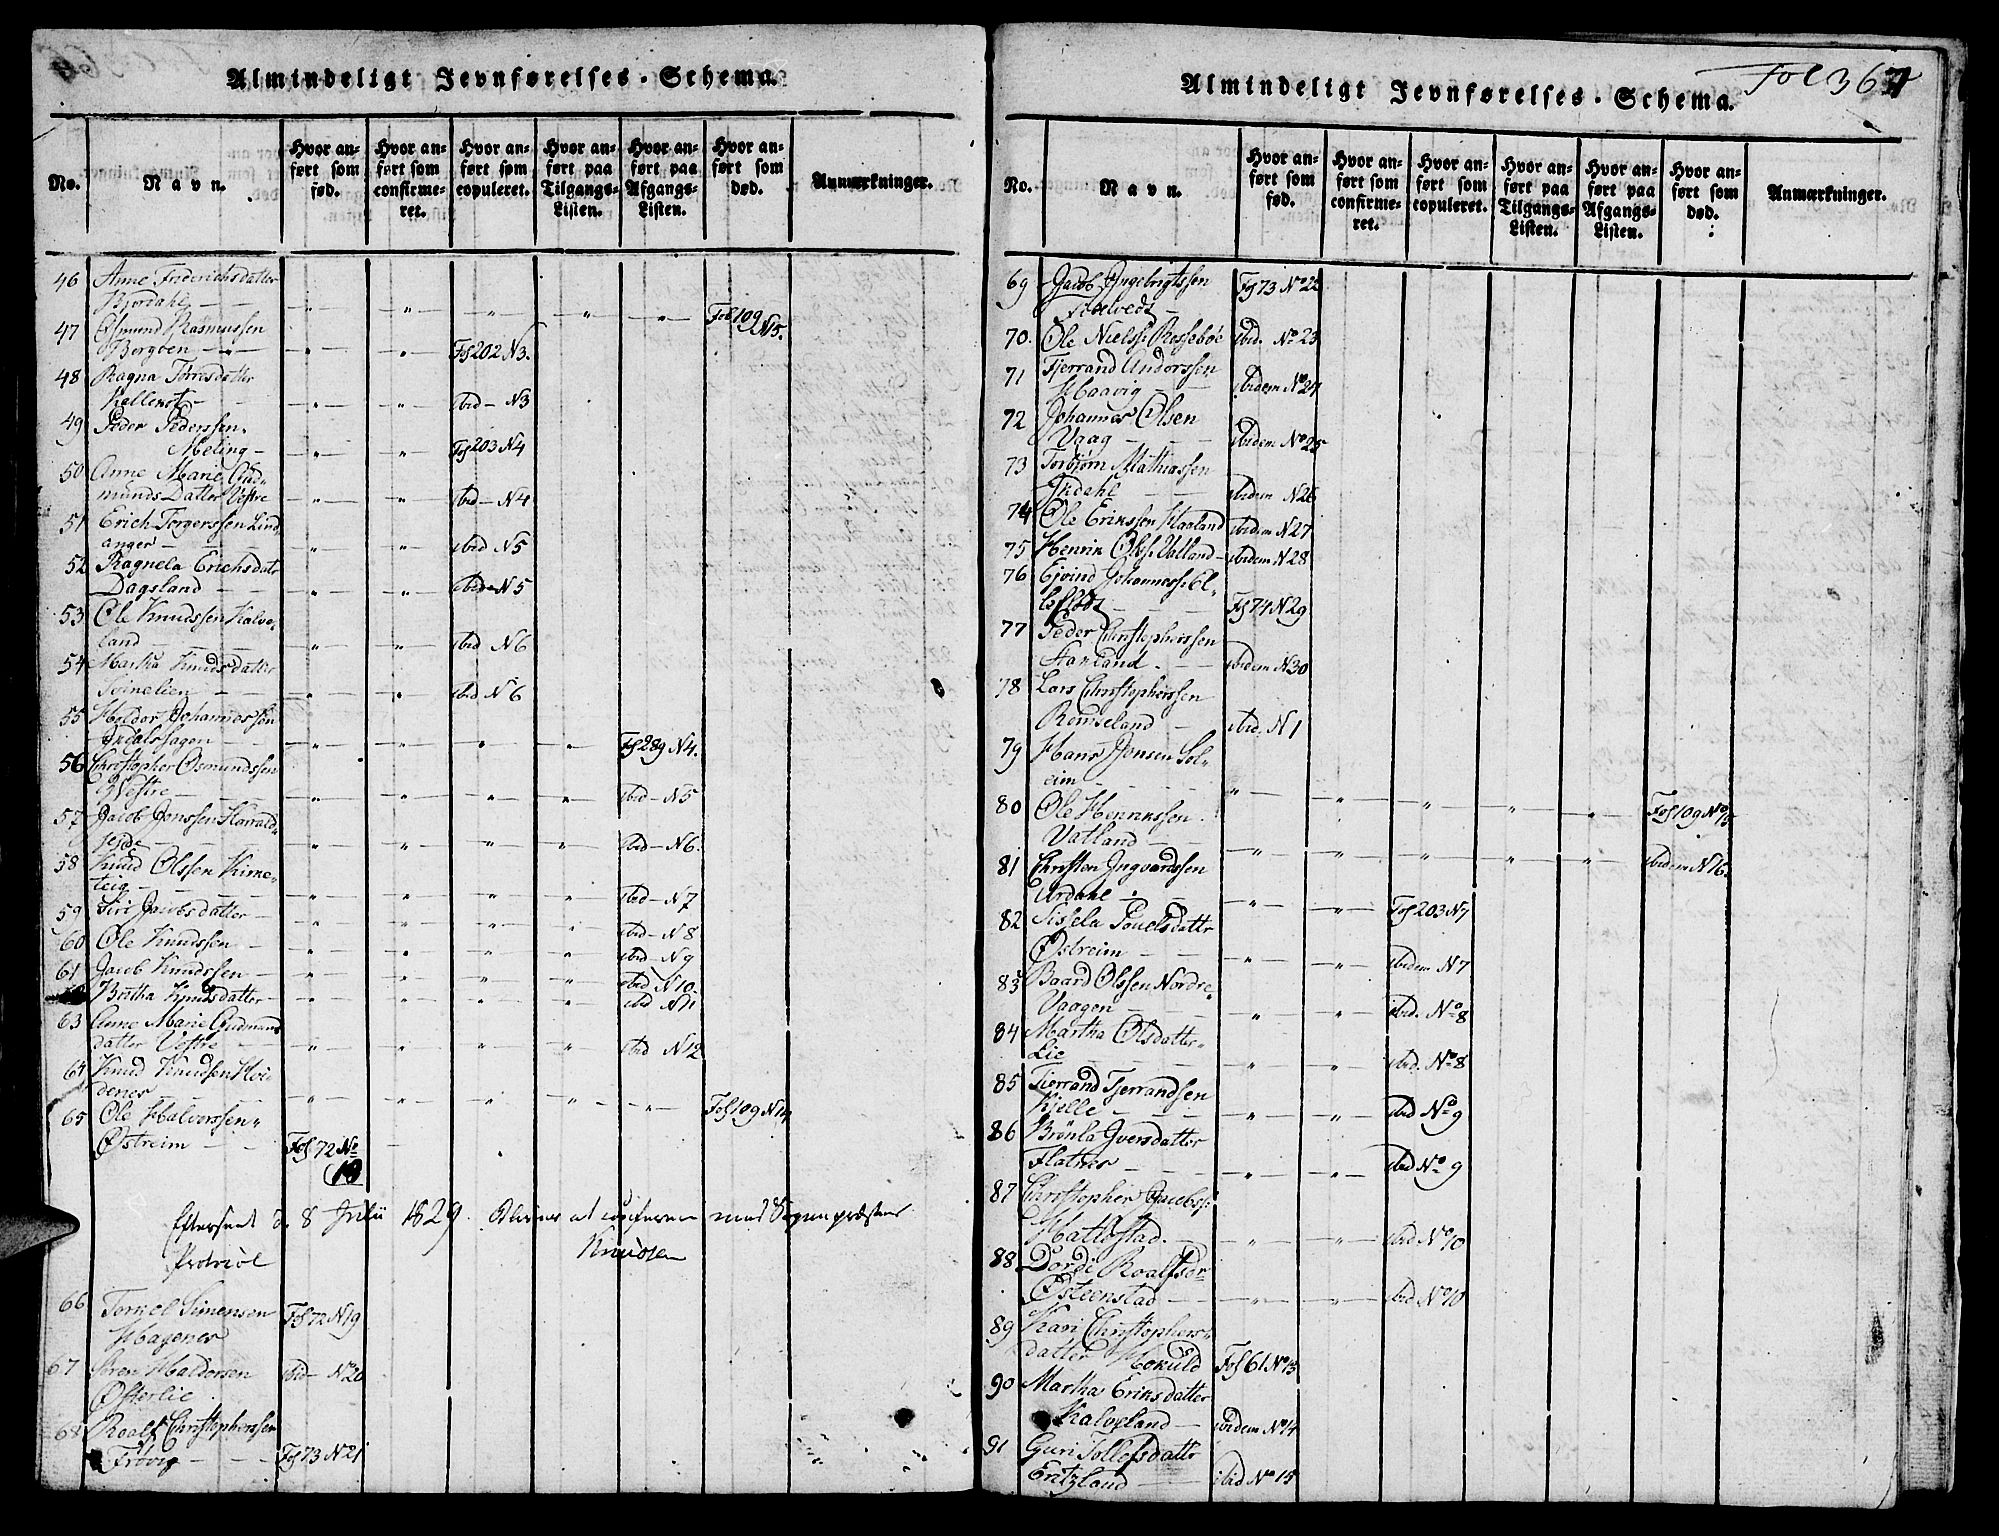 Almindeligt Jevnførelses-Schema.
No.
Navn.
Hvor anført som fød.
Hvor anført som confirmeret.
Hvor anført som copuleret.
Hvor anført paa Tilgangs-Listen.
Hvor anført paa Afgangs-Listen.
Hvor anført som død.
Anmærkninger.
46 Anne Friderichsdatter
Bjordahl — — Fol 109 N15.
47 Osmund Rasmussen
Borgøen — Fol 202 N3.
48 Ragna Torresdatter
ibid — N3
49 Peder Pederssen
Meling — Fol 203 N4
50 Anne Marie Gud-
munds Datter Vestre ibid — N4
51 Erich Torgerssen Lind
anger — ibid N5
52 Ragnela Erichsdatr
Dagsland — ibid — N5
53 Ole Knudssen Kalve-
land ibid N6
54 Martha Knudsdatter
ibid N6
55 Haldor Johannessen
Fol 289 N4.
56 Christopher Osmundssen
Vestre — ibid — N5
57 Jacob Jonssen Harrald-
ibid — N6.
58 Knud Olssen Kime-
teig — ibid — N7
59 Siri Jacobsdatter — ibid — N8
60 Ole Knudssen — ibid N9
61 Jacob Knudssen — ibid N10
Britha Knudsdatter — ibid N11
63 Anne Marie Gudmunds
datter Vestre — ibid N12
64 Knud Knudsen Hvid
denes — Fol 109 N14
65 Ole Halvorssen
Østreim — Fol 72 No
18
Efterseet d. 8 Julii 1829. med Sognepræstens
Protocol Knudsen
66 Tormod Simensen
Hagenes Fol 72 N19
67 Søren Haldorsen
Østerlie ibid — No 20
68 Roalf Christopherssen
Frøvig — Fol 73 No 21
Almindeligt Jevnførelses-Schema.
Fol 367
No.
Navn.
Hvor anført som fød.
Hvor anført som confirmeret.
Hvor anført som copuleret.
Hvor anført paa Tilgangs-Listen.
Hvor anført paa Afgangs-Listen.
Hvor anført som død.
Anmærkninger.
69 Jacob Ingebrigtssen
Fol 73 No 22
70. Ole Nielss: Rossebøe ibid. No 23
71 Tjerrand Anderssen
Haavig — ibidem No 24
72 Johannes Olsen
Vaag — ibidem No 25
73 Torbjørn Mathiassen
Indahl ibidem N26
74 Ole Erikssen Haaland ibidem N27
75 Henrik Olss: Vatland — ibidem N28
76 Ejvind Johanness: El-
Fol 74 N29
77 Peder Christopherssen
ibidem N30
78 Lars Christopherssen
Rømseland — ibid. N1
79 Hans Jonsen Sol-
eim — Fol 109 No 15
80 Ole Henrikssen
Vatland — ibidem N16.
81 Christen Ingvardssen
Ardahl — Fol 203 N7
82 Sissela Pouelsdattr
Østreim — ibidem N7
83 Baard Olssen Nordre
Vaagen — ibid. No 8
84 Martha Olsdatter
Lie ibid. No 8
85 Tjerrand Tjerrandsen
Kjelle — ibid No 9
86 Brønla Iversdatter
Flatnes — ibid No 9
87 Christopher Jacobss:
Hatlestad. — ibid No 10
88 Dordi Roalfsdr
Østeenstad — ibid No 10
89 Kari Christophers-
datter Hokuld Fol 61 No 13
90 Martha Eriksdatter
Kalveland — ibidem No 14
91 Guri Tollefsdattr
Eritzland — ibid No 15